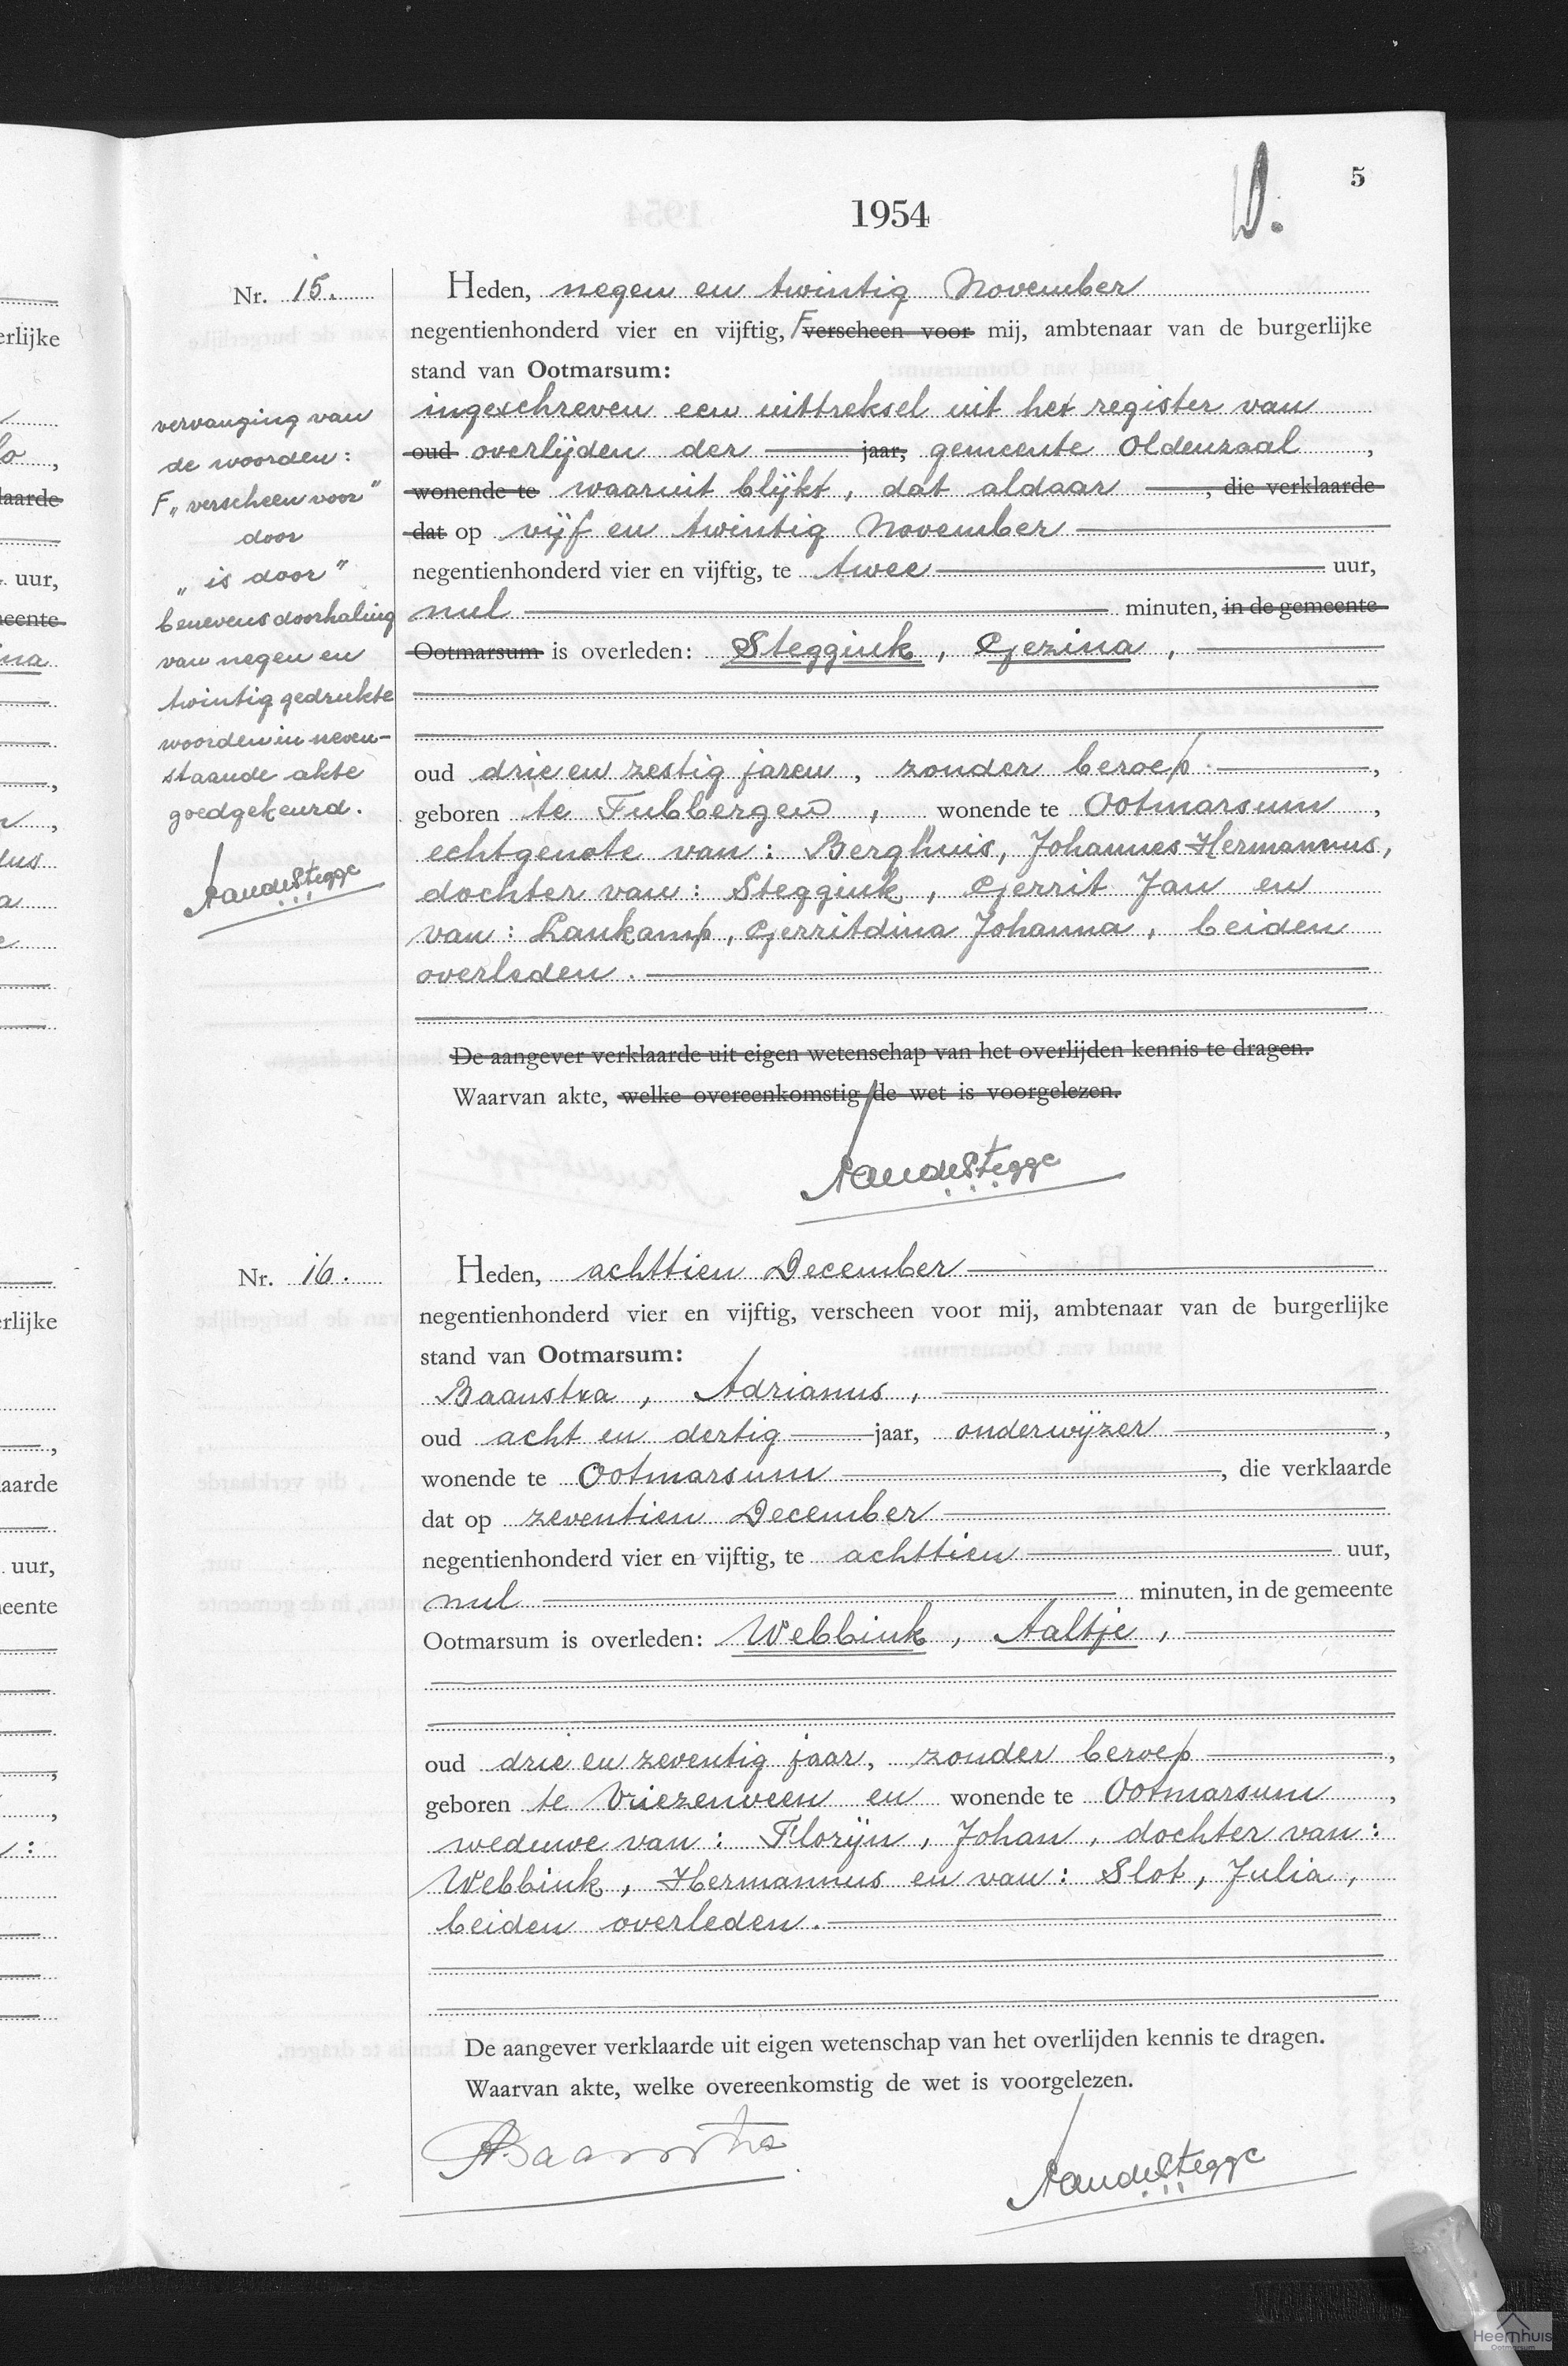 5
1954
D.
Nr. 15.
Heden, negen en twintig November
negentienhonderd vier en vijftig, F verscheen voor mij, ambtenaar van de burgerlijke
stand van Ootmarsum:
ingeschreven een uittreksel uit het register van
oud overlijden der jaar, gemeente Oldenzaal ,
wonende te waaruit blijkt, dat aldaar , die verklaarde
dat op vijf en twintig November
negentienhonderd vier en vijftig, te twee uur,
nul minuten, in de gemeente
Ootmarsum is overleden: Steggink, Gezina,
oud drie en zestig jaren, zonder beroep ,
geboren te Tubbergen, wonende te Ootmarsum ,
echtgenote van: Berghuis, Johannes Hermannus,
dochter van: Steggink, Gerrit Jan en
van: Lankamp, Gerritdina Johanna, beiden
overleden.
De aangever verklaarde uit eigen wetenschap van het overlijden kennis te dragen.
Waarvan akte, welke overeenkomstig de wet is voorgelezen.
vervanging van
de woorden:
F „verscheen voor"
door
„is door"
benevens doorhaling
van negen en
twintig gedrukte
woorden in neven-
staande akte
goedgekeurd.
Nr. 16.
Heden, achttien December
negentienhonderd vier en vijftig, verscheen voor mij, ambtenaar van de burgerlijke
stand van Ootmarsum:
Baanstra, Adrianus,
oud acht en dertig jaar, onderwijzer ,
wonende te Ootmarsum , die verklaarde
dat op zeventien December
negentienhonderd vier en vijftig, te achttien uur,
nul minuten, in de gemeente
Ootmarsum is overleden: Webbink, Aaltje,
oud drie en zeventig jaar, zonder beroep ,
geboren te Vriezenveen en wonende te Ootmarsum ,
weduwe van: Florijn, Johan, dochter van:
Webbink, Hermannus en van: Slot, Julia,
beiden overleden.
De aangever verklaarde uit eigen wetenschap van het overlijden kennis te dragen.
Waarvan akte, welke overeenkomstig de wet is voorgelezen.
ABaanstra
erlijke
laarde
uur,
eente
ina
dus
rlijke
aarde
uur,
eente
Heemhuis
Ootmarsum